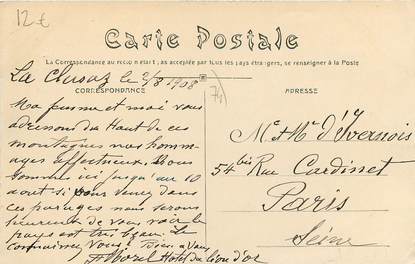 12€
Carte Postale
La Correspondance au recto n'était pas acceptée par tous les pays étrangers, se renseigner à la Poste
La Clusaz le 2/8 1908
74
CORRESPONDANCE
ADRESSE
Ma femme et moi vous
adressons du Haut de ces
montagnes nos homm-
ages affectueux. Nous
sommes ici jusqu'au 10
aout si vous venez dans
ces parages nous serons
heureux de vous voir le
pays est très beau. Le
connaissez vous? Bien à vous
Morel Hotel du Lion d'or
Mr & Mme d'Ivernois
54 bis Rue Cardinet
Paris
Seine